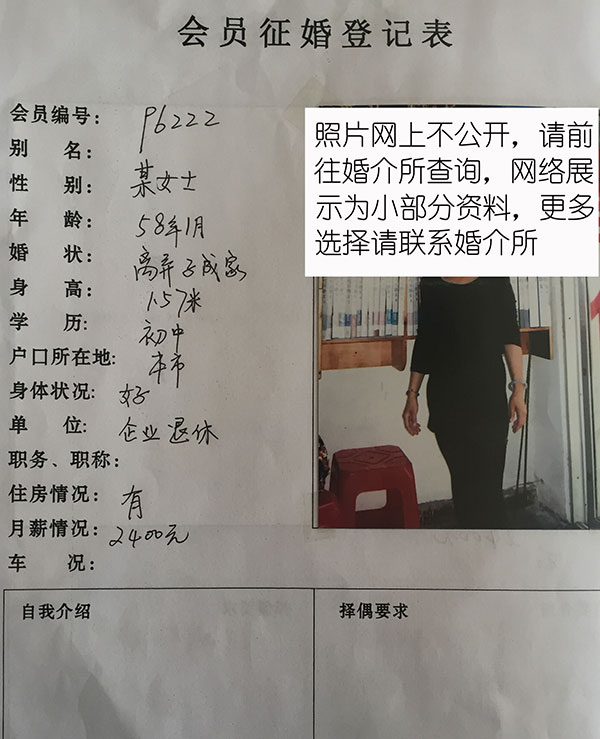 会员征婚登记表
会员编号：P6222
别 名：
性 别：某女士
年 龄：58年1月
婚 状：离异子成家
身 高：1.57米
学 历：初中
户口所在地：本市
身体状况：好
单 位：企业退休
职务、职称：
住房情况：有
月薪情况：2400元
车 况：
照片网上不公开，请前
往婚介所查询，网络展
示为小部分资料，更多
选择请联系婚介所
自我介绍
择偶要求